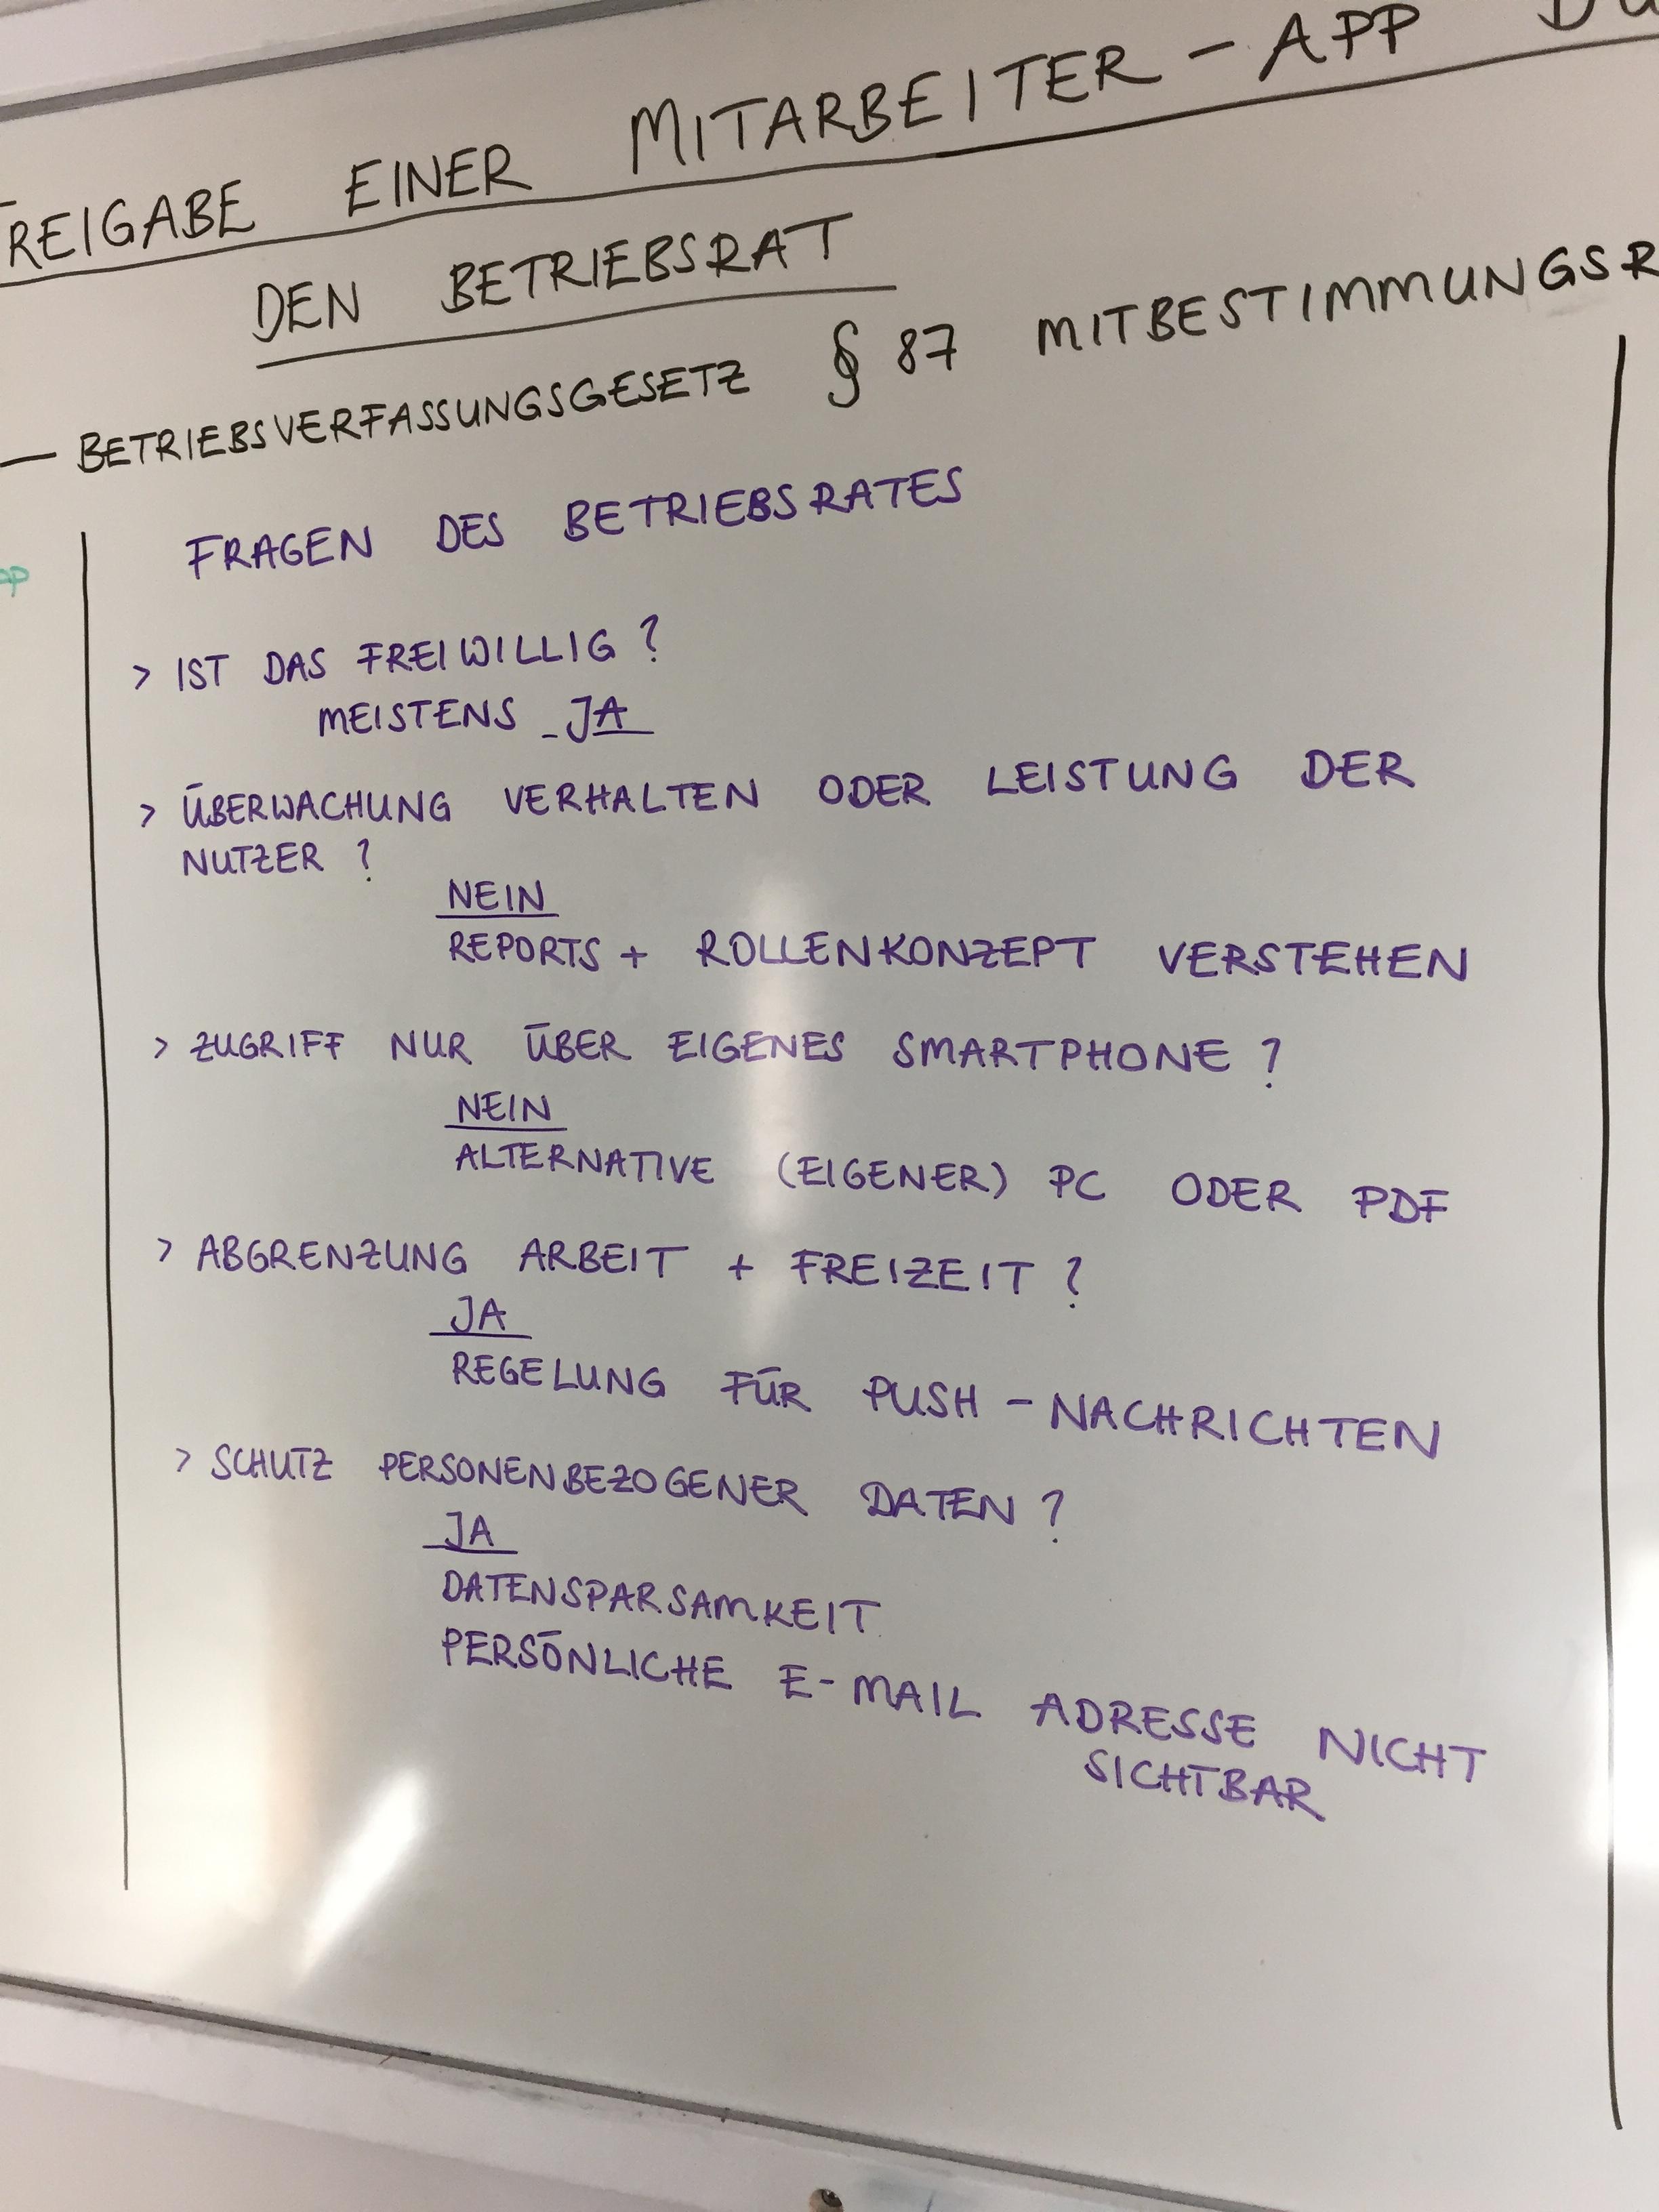 FREIGABE EINER MITARBEITER-APP DU
DEN BETRIEBSRAT
— BETRIEBSVERFASSUNGSGESETZ § 87 MITBESTIMMUNGSR
FRAGEN DES BETRIEBSRATES
> IST DAS FREIWILLIG?
MEISTENS JA
> ÜBERWACHUNG VERHALTEN ODER LEISTUNG DER
NUTZER?
NEIN
REPORTS + ROLLENKONZEPT VERSTEHEN
> ZUGRIFF NUR ÜBER EIGENES SMARTPHONE?
NEIN
ALTERNATIVE (EIGENER) PC ODER PDF
> ABGRENZUNG ARBEIT + FREIZEIT?
JA
REGELUNG FÜR PUSH-NACHRICHTEN
> SCHUTZ PERSONENBEZOGENER DATEN?
JA
DATENSPARSAMKEIT
PERSÖNLICHE E-MAIL ADRESSE NICHT
SICHTBAR